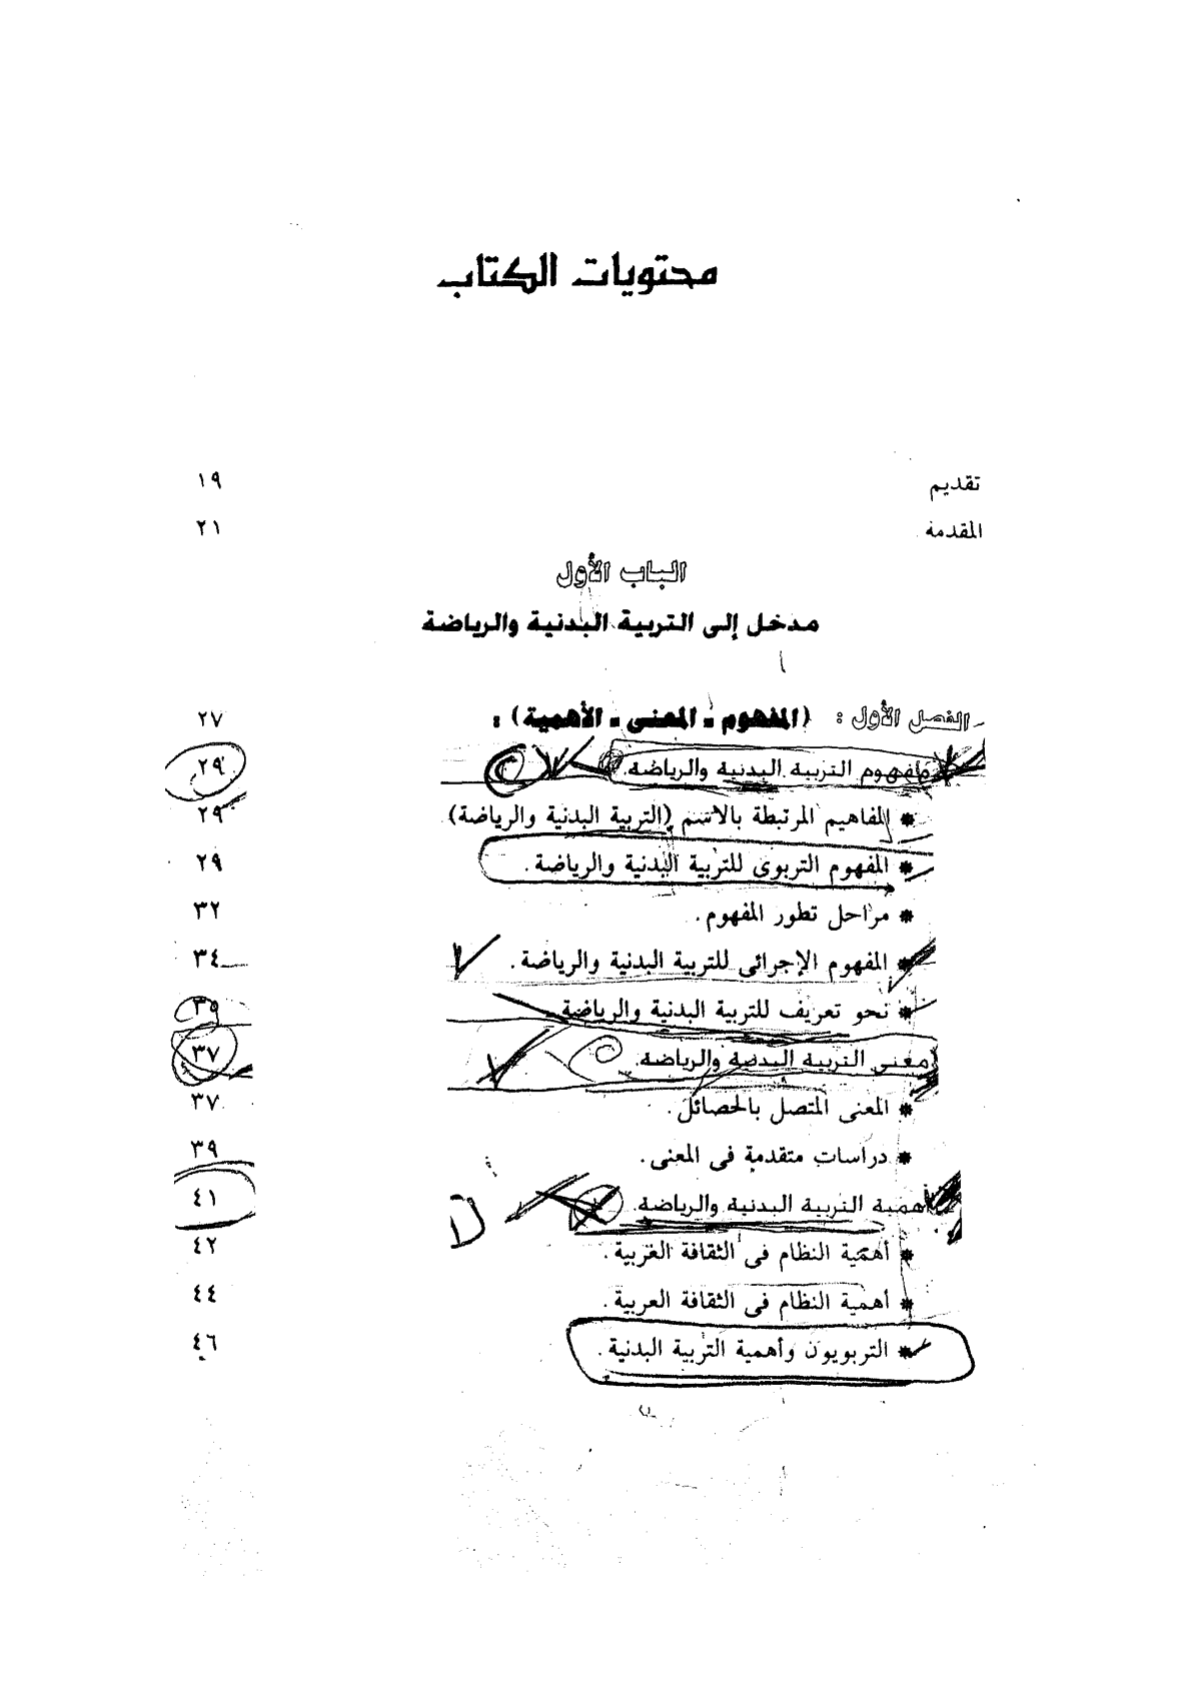 محتويات الكتاب
تقديم ١٩
المقدمة ٢١
الباب الأول
مدخل إلى التربية البدنية والرياضة
الفصل الأول : (المفهوم ـ المعنى ـ الأهمية) : ٢٧
مفهوم التربية البدنية والرياضة. ٢٩
* المفاهيم المرتبطة بالاسم (التربية البدنية والرياضة) ٢٩
* المفهوم التربوى للتربية البدنية والرياضة . ٢٩
* مراحل تطور المفهوم . ٣٢
* المفهوم الإجرائى للتربية البدنية والرياضة . ٣٤
* نحو تعريف للتربية البدنية والرياضة ٣٥
معنى التربية البدنية والرياضة. ٣٧
* المعنى المتصل بالحصائل . ٣٧
* دراسات متقدمة فى المعنى . ٣٩
أهمية التربية البدنية والرياضة. ٤١
* أهمية النظام فى الثقافة الغربية . ٤٢
* أهمية النظام فى الثقافة العربية . ٤٤
* التربويون وأهمية التربية البدنية . ٤٦